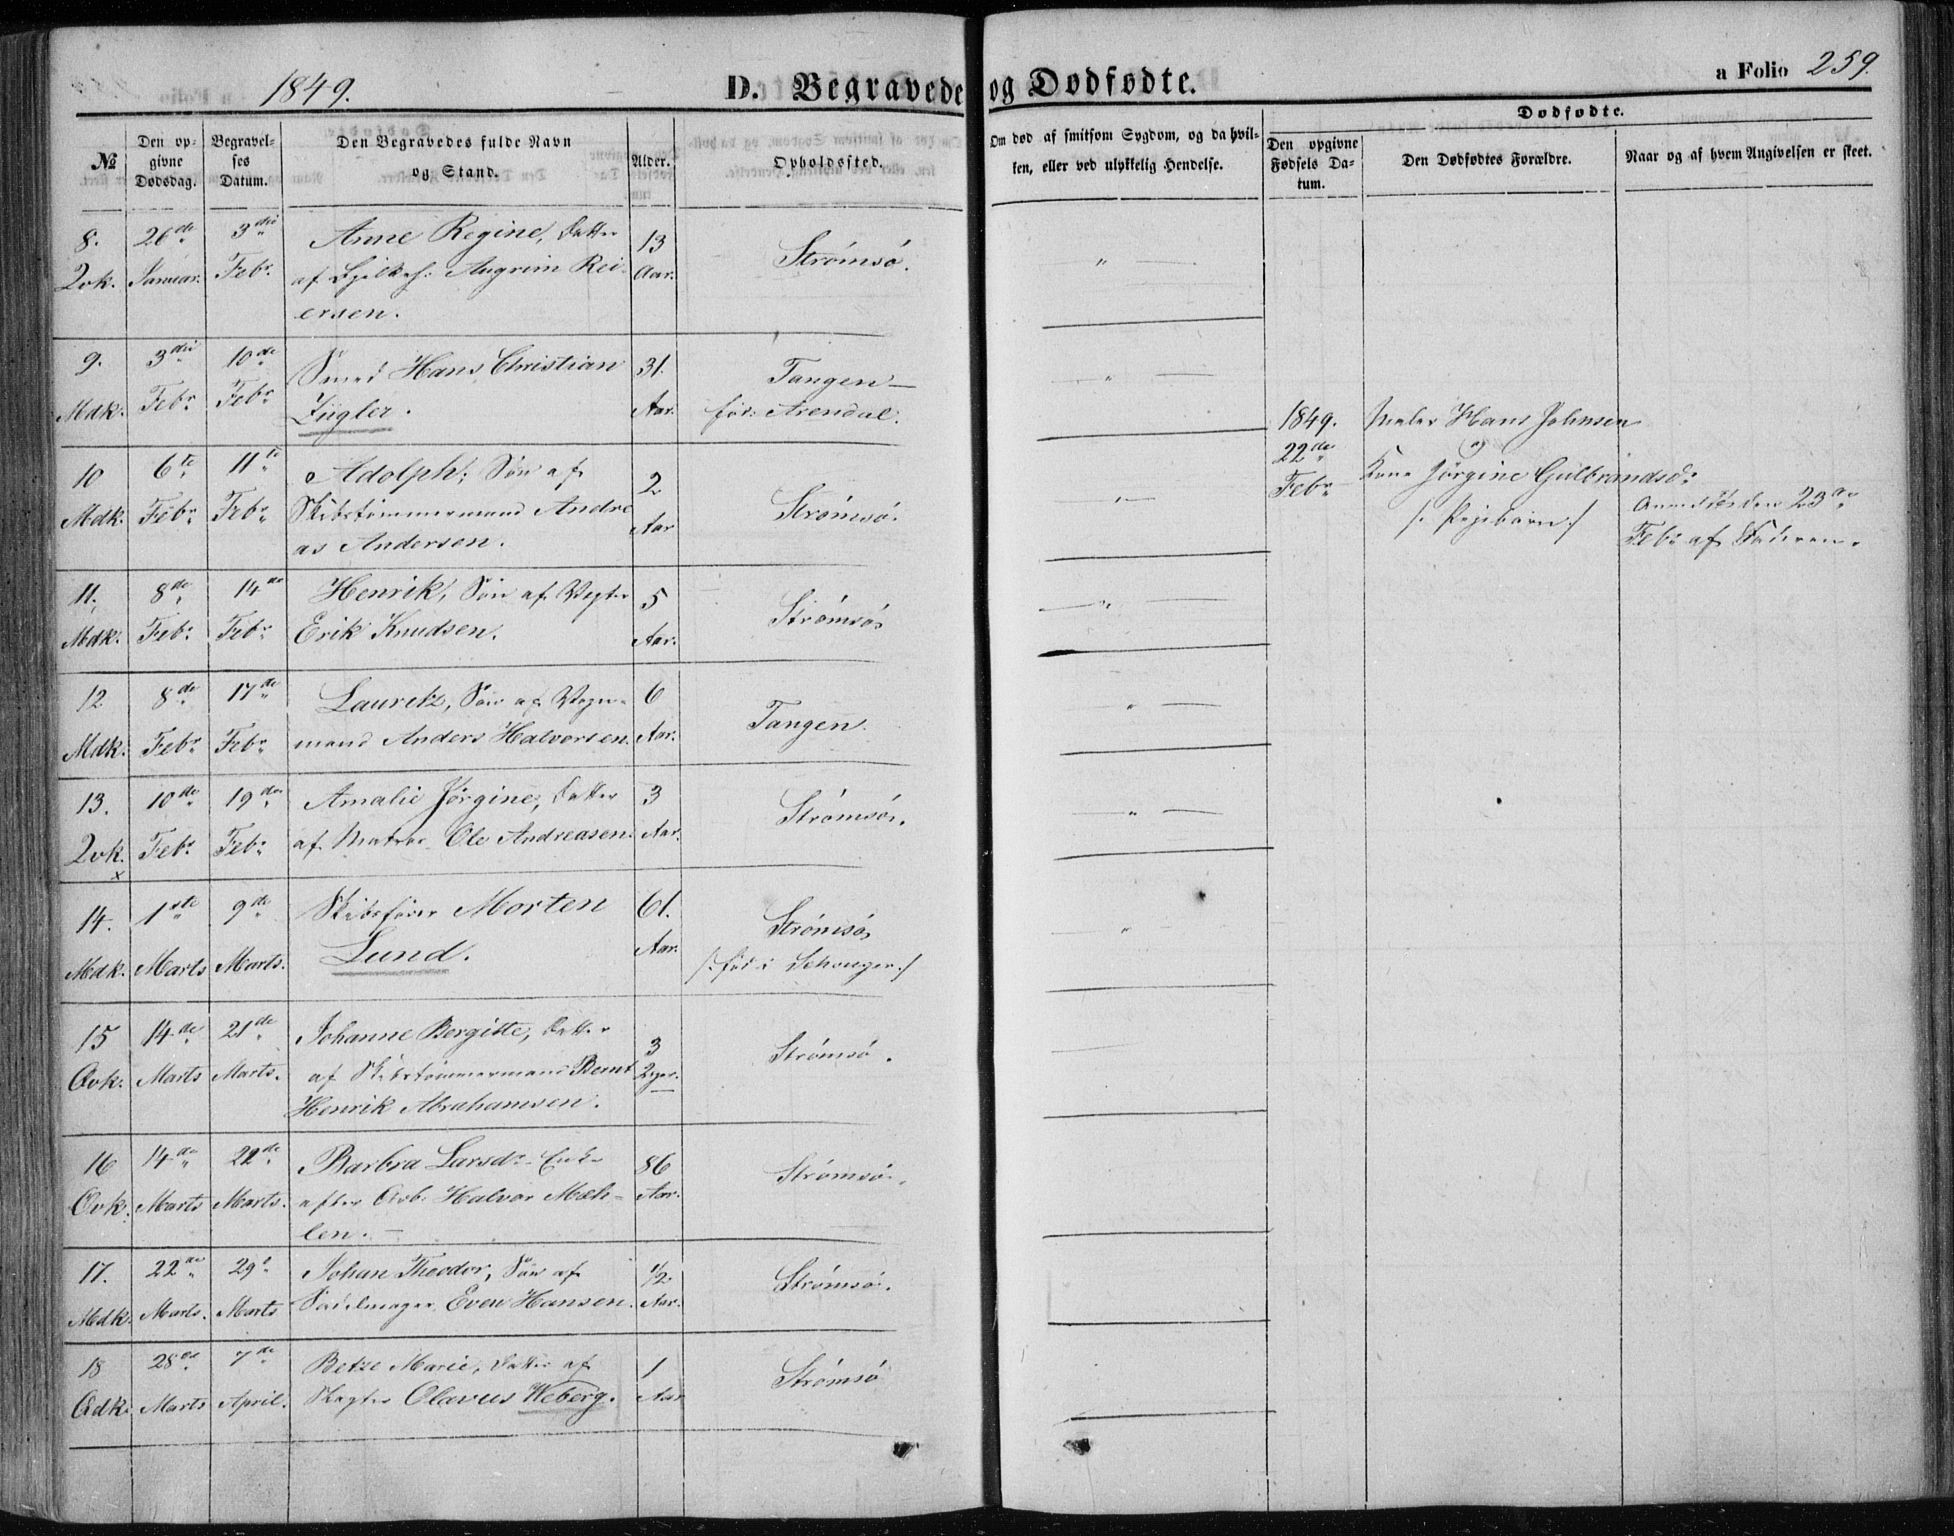 1849.
D. Begravede og Dødfødte.
a Folio 259.
№
Den opgivne Dødsdag.
Begravelses Datum.
Den Begravedes fulde Navn og Stand.
Alder.
Opholdssted.
Om død af smitsom Sygdom, og da hvilken, eller ved ulykkelig Hendelse.
Dødfødte.
Den opgivne Fødsels Datum.
Den Dødfødtes Forældre.
Naar og af hvem Angivelsen er skeet.
8. 26de 3die Anne Regine, Datter 13 Strømsø.
Qvk. Januar. Febr. af Augrim Rei- Aar.
ersen.
9. 3die 10de Smed Hans Christian 31. Tangen—
Mdk. Febr. Febr. Zügler. Aar. fød: Arendal.
10 6te 11te Adolph, Søn af 2 Strømsø.
Mdk. Febr. Febr. Skibstømmermand Andre Aar
as Andersen.
1849. Maler Hans Johnsen
22de og
Febr. Kone Jørgine Gulbrandsd:
/: Pigebarn :/
Anmeldt den 23de
Febr. af Faderen.
11. 8de 14de Henrik, Søn af Vegter 5 Strømsø.
Mdk. Febr. Febr. Erik Knudsen. Aar.
12 8de 17de Lauretz, Søn af Vogn- 6 Tangen.
Mdk. Febr. Febr. mand Anders Halvorsen. Aar.
13. 10de 19de Amalie Jørgine, Datter 3 Strømsø.
Qvk. Febr. Febr. af Matros Ole Andreasen. Aar.
x
14. 1ste 9de Skibsfører Morten 61. Strømsø,
Mdk. Marts Marts. Lund. Aar. /: fød i :/
15 14de 21de Johanne Bergitte, Datter 3 Strømsø.
Qvk. Marts Marts. af Skibstømmermand Bernt Uger.
Henrik Abrahamsen.
16 14de 22de Barbra Larsdr. Enke 86 Strømsø.
Qvk. Marts Marts. efter Arb. Halvor Mæh- Aar.
len.—
17. 22de 29de Johan Theodor, Søn af 1/2 Strømsø.
Mdk. Marts. Marts Sadelmager Even Hansen. Aar.
18 28de 7de Betze Marie, Datter af 1 Strømsø
Qdk. Marts April. Olavus Weberg. Aar